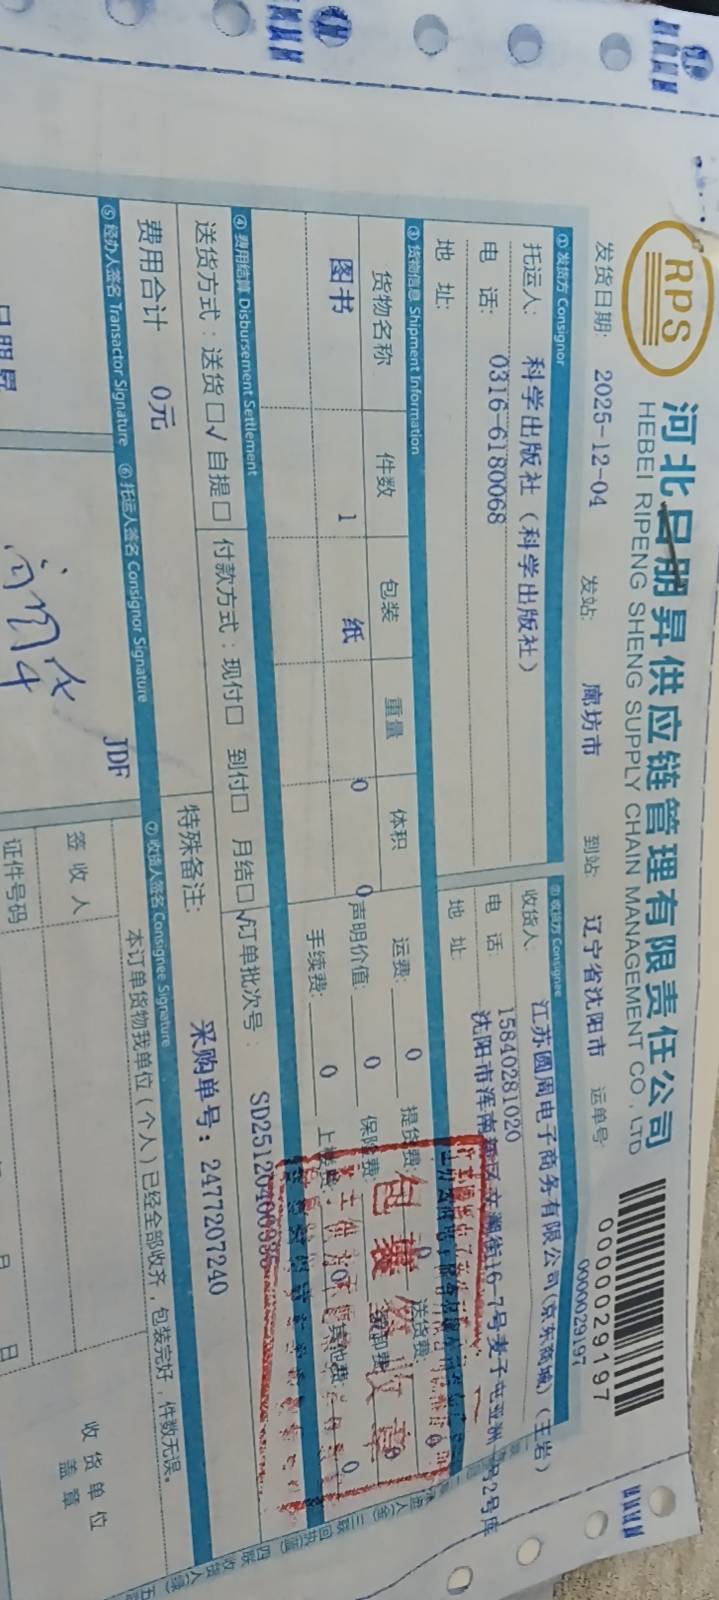 RPS
河北日朋昇供应链管理有限责任公司
HEBEI RIPENG SHENG SUPPLY CHAIN MANAGEMENT CO., LTD
0000029197
发货日期: 2025-12-04 发站: 廊坊市 到站: 辽宁省沈阳市 运单号: 0000029197
① 发货方 Consignor ② 收货方 Consignee
托运人: 科学出版社 (科学出版社) 收货人: 江苏圆周电子商务有限公司(京东商城) (王岩)
电 话: 0316-6180068 电 话: 15840281020
地 址: 地 址: 沈阳市浑南新区
③ 货物信息 Shipment Information
货物名称 件数 包装 重量 体积 运费: 0 提货费: 0 送货费: 0
图书 1 纸 0 0 声明价值: 0 保险费: 装卸费: 0
手续费: 0 上楼费: 0 其他费: 0
④ 费用结算 Disbursement Settlement
送货方式: 送货□√ 自提□ 付款方式: 现付□ 到付□ 月结□√ 订单批次号: SD251204
费用合计 0元 特殊备注: 采购单号: 2477207240
⑤ 经办人签名 Transactor Signature ⑥ 托运人签名 Consignor Signature ⑦ 收货人签名 Consignee Signature
JDF
本订单货物我单位(个人)已经全部收齐, 包装完好, 件数无误。
签收人
证件号码
收货单位
盖章
包装 收章